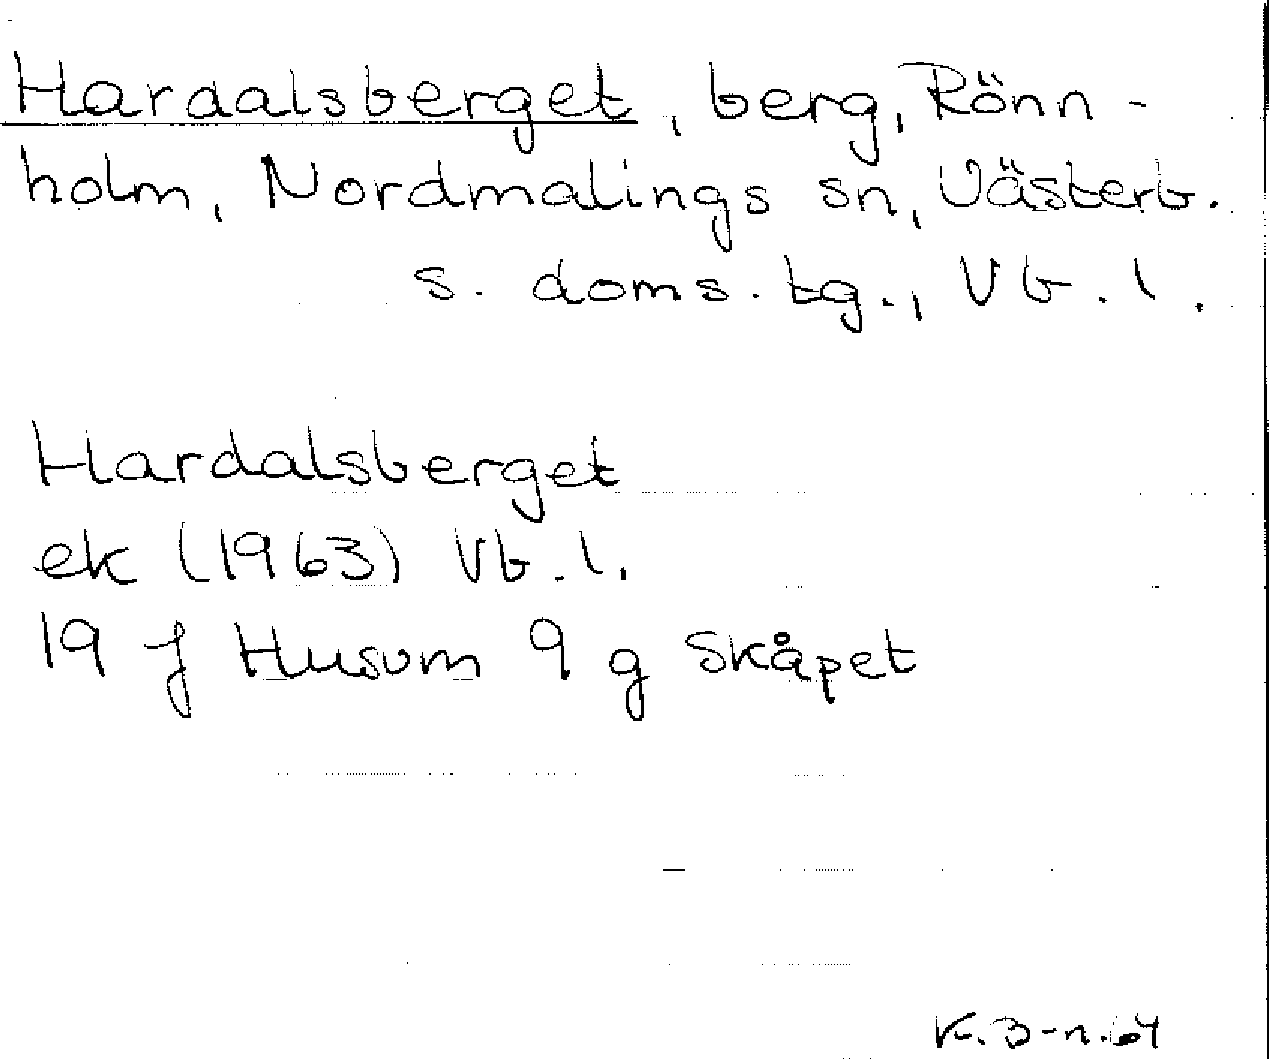 Hardalsberget, berg, Rönn-
holm, Nordmalings sn, Västerb.
s. doms. tg., Vb. l.
Hardalsberget
ek (1963) Vb. l.
19 J Husum 9 g Skåpet
K. B-n. 64